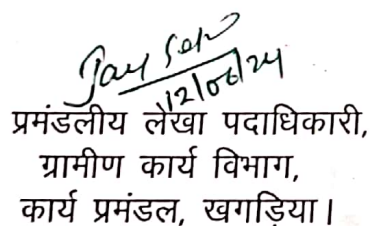 12/06/24
प्रमंडलीय लेखा पदाधिकारी,
ग्रामीण कार्य विभाग,
कार्य प्रमंडल, खगड़िया।